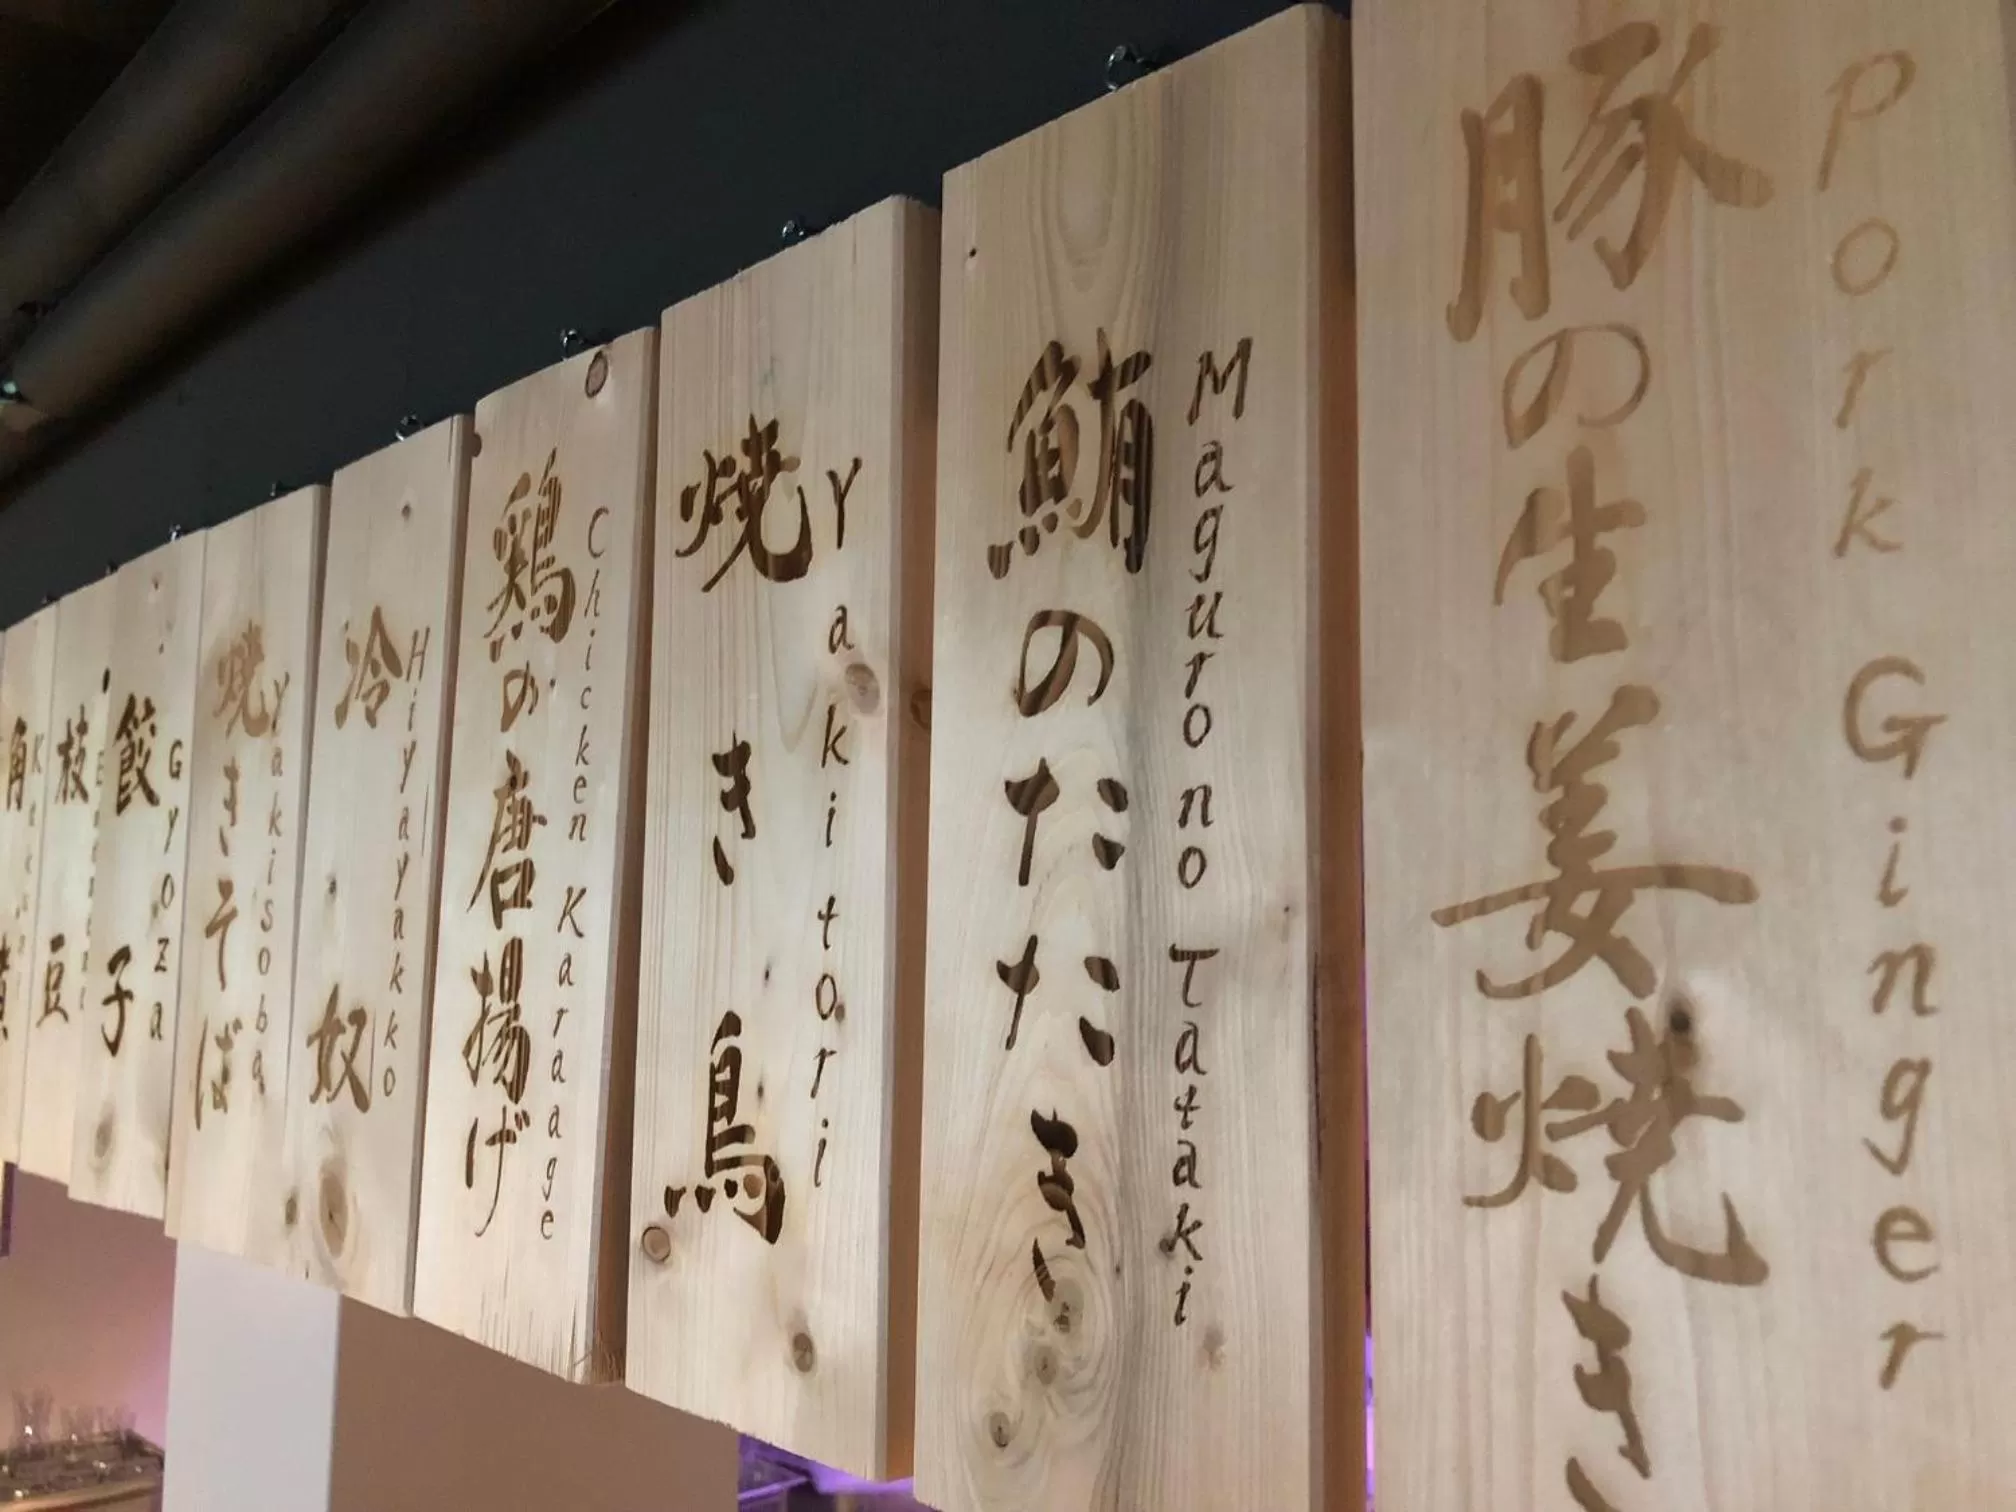 豚の生姜焼き
Pork Ginger
鮪のたたき
Maguro no Tataki
焼き鳥
Yakitori
鶏の唐揚げ
Chicken Karaage
冷奴
Hiyayakko
焼きそば
Yakisoba
餃子
Gyoza
枝豆